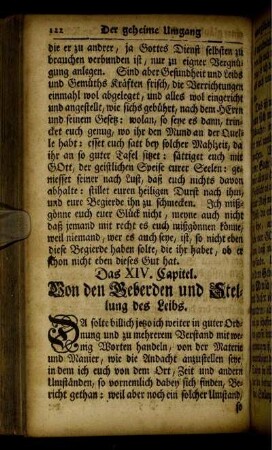 122 Der geheime Umgang
die er zu andrer, ja Gottes Dienst selbsten zu
brauchen verbunden ist, nur zu eigner Vergnü-
gung anlegen. Sind aber Gesundheit und Leibs
und Gemüths Kräfften frisch, die Verrichtungen
einmahl wol abgeleget, und alles wol eingericht
und angestellt, wie sichs gebührt, nach dem HErrn
und seinem Gesetz: wolan, so seye es dann, trin-
cket euch genug, wo ihr den Mund an der Quel-
le habt: esset euch satt bey solcher Mahlzeit, da
ihr an so guter Tafel sitzet: sättiget euch mit
GOtt, der geistlichen Speise uwer Seelen: ge-
niesset seiner nach Lust, daß euch nichts davon
abhalte: stillet euren heiligen Durst nach ihm,
und eure Begierde ihn zu schmecken. Ich miß-
gönne euch euer Glück nicht, meyne auch nicht
daß jemand mit recht es euch mißgönnen könne,
weil niemand, wer es auch seye, ist, so nicht eben
diese Begierde haben solte, die ihr habet, ob er
schon nicht eben dieses Gut hat.
Das XIV. Capitel.
Von den Geberden und Stel-
lung des Leibs.
DA solte billich jetzo ich weiter in guter Ord-
nung und zu mehrerem Verstand mit we-
nig Worten handeln, von der Materie
und Manier, wie die Andacht anzustellen seye
in dem ich euch von dem Ort, Zeit und andern
Umständen, so vornemlich dabey sich finden, Be-
richt gethan: weil aber noch ein solcher Umstand,
so